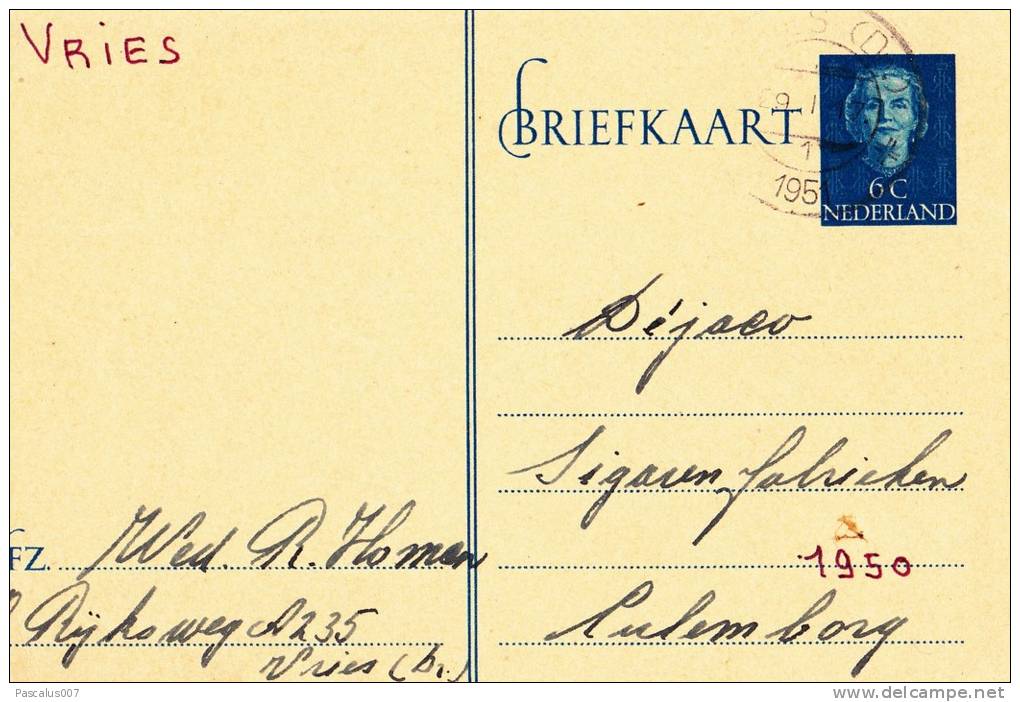 VRiES
BRIEFKAART
1
195
6 C
NEDERLAND
Déjaco
Sigarenfabrieken
1950
Culemborg
FZ. Wed. R. Homan
Rijksweg A235
Vries (Dr.)
Pascalus007
www.delcampe.net